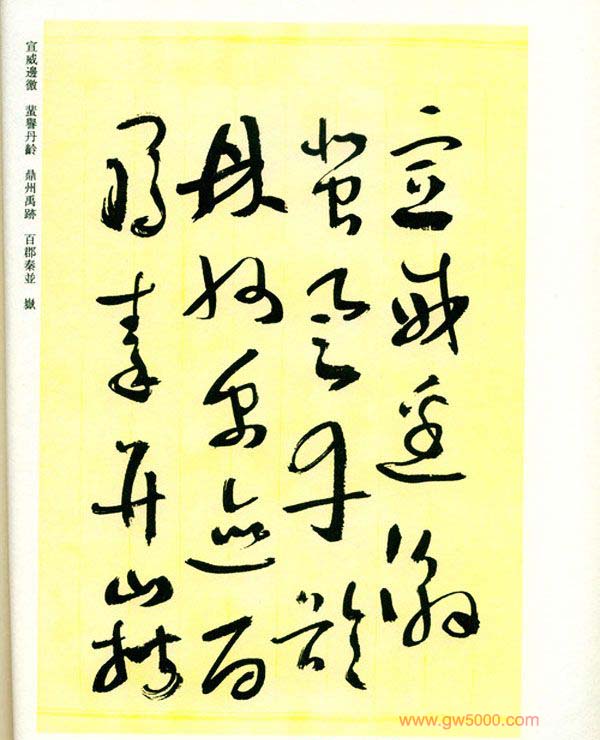 宣威邊徼
蜚譽丹齡
鼎州禹迹百
郡秦并嶽
宣威邊徼 蜚譽丹齡 鼎州禹跡 百郡秦並 嶽
www.gw5000.com